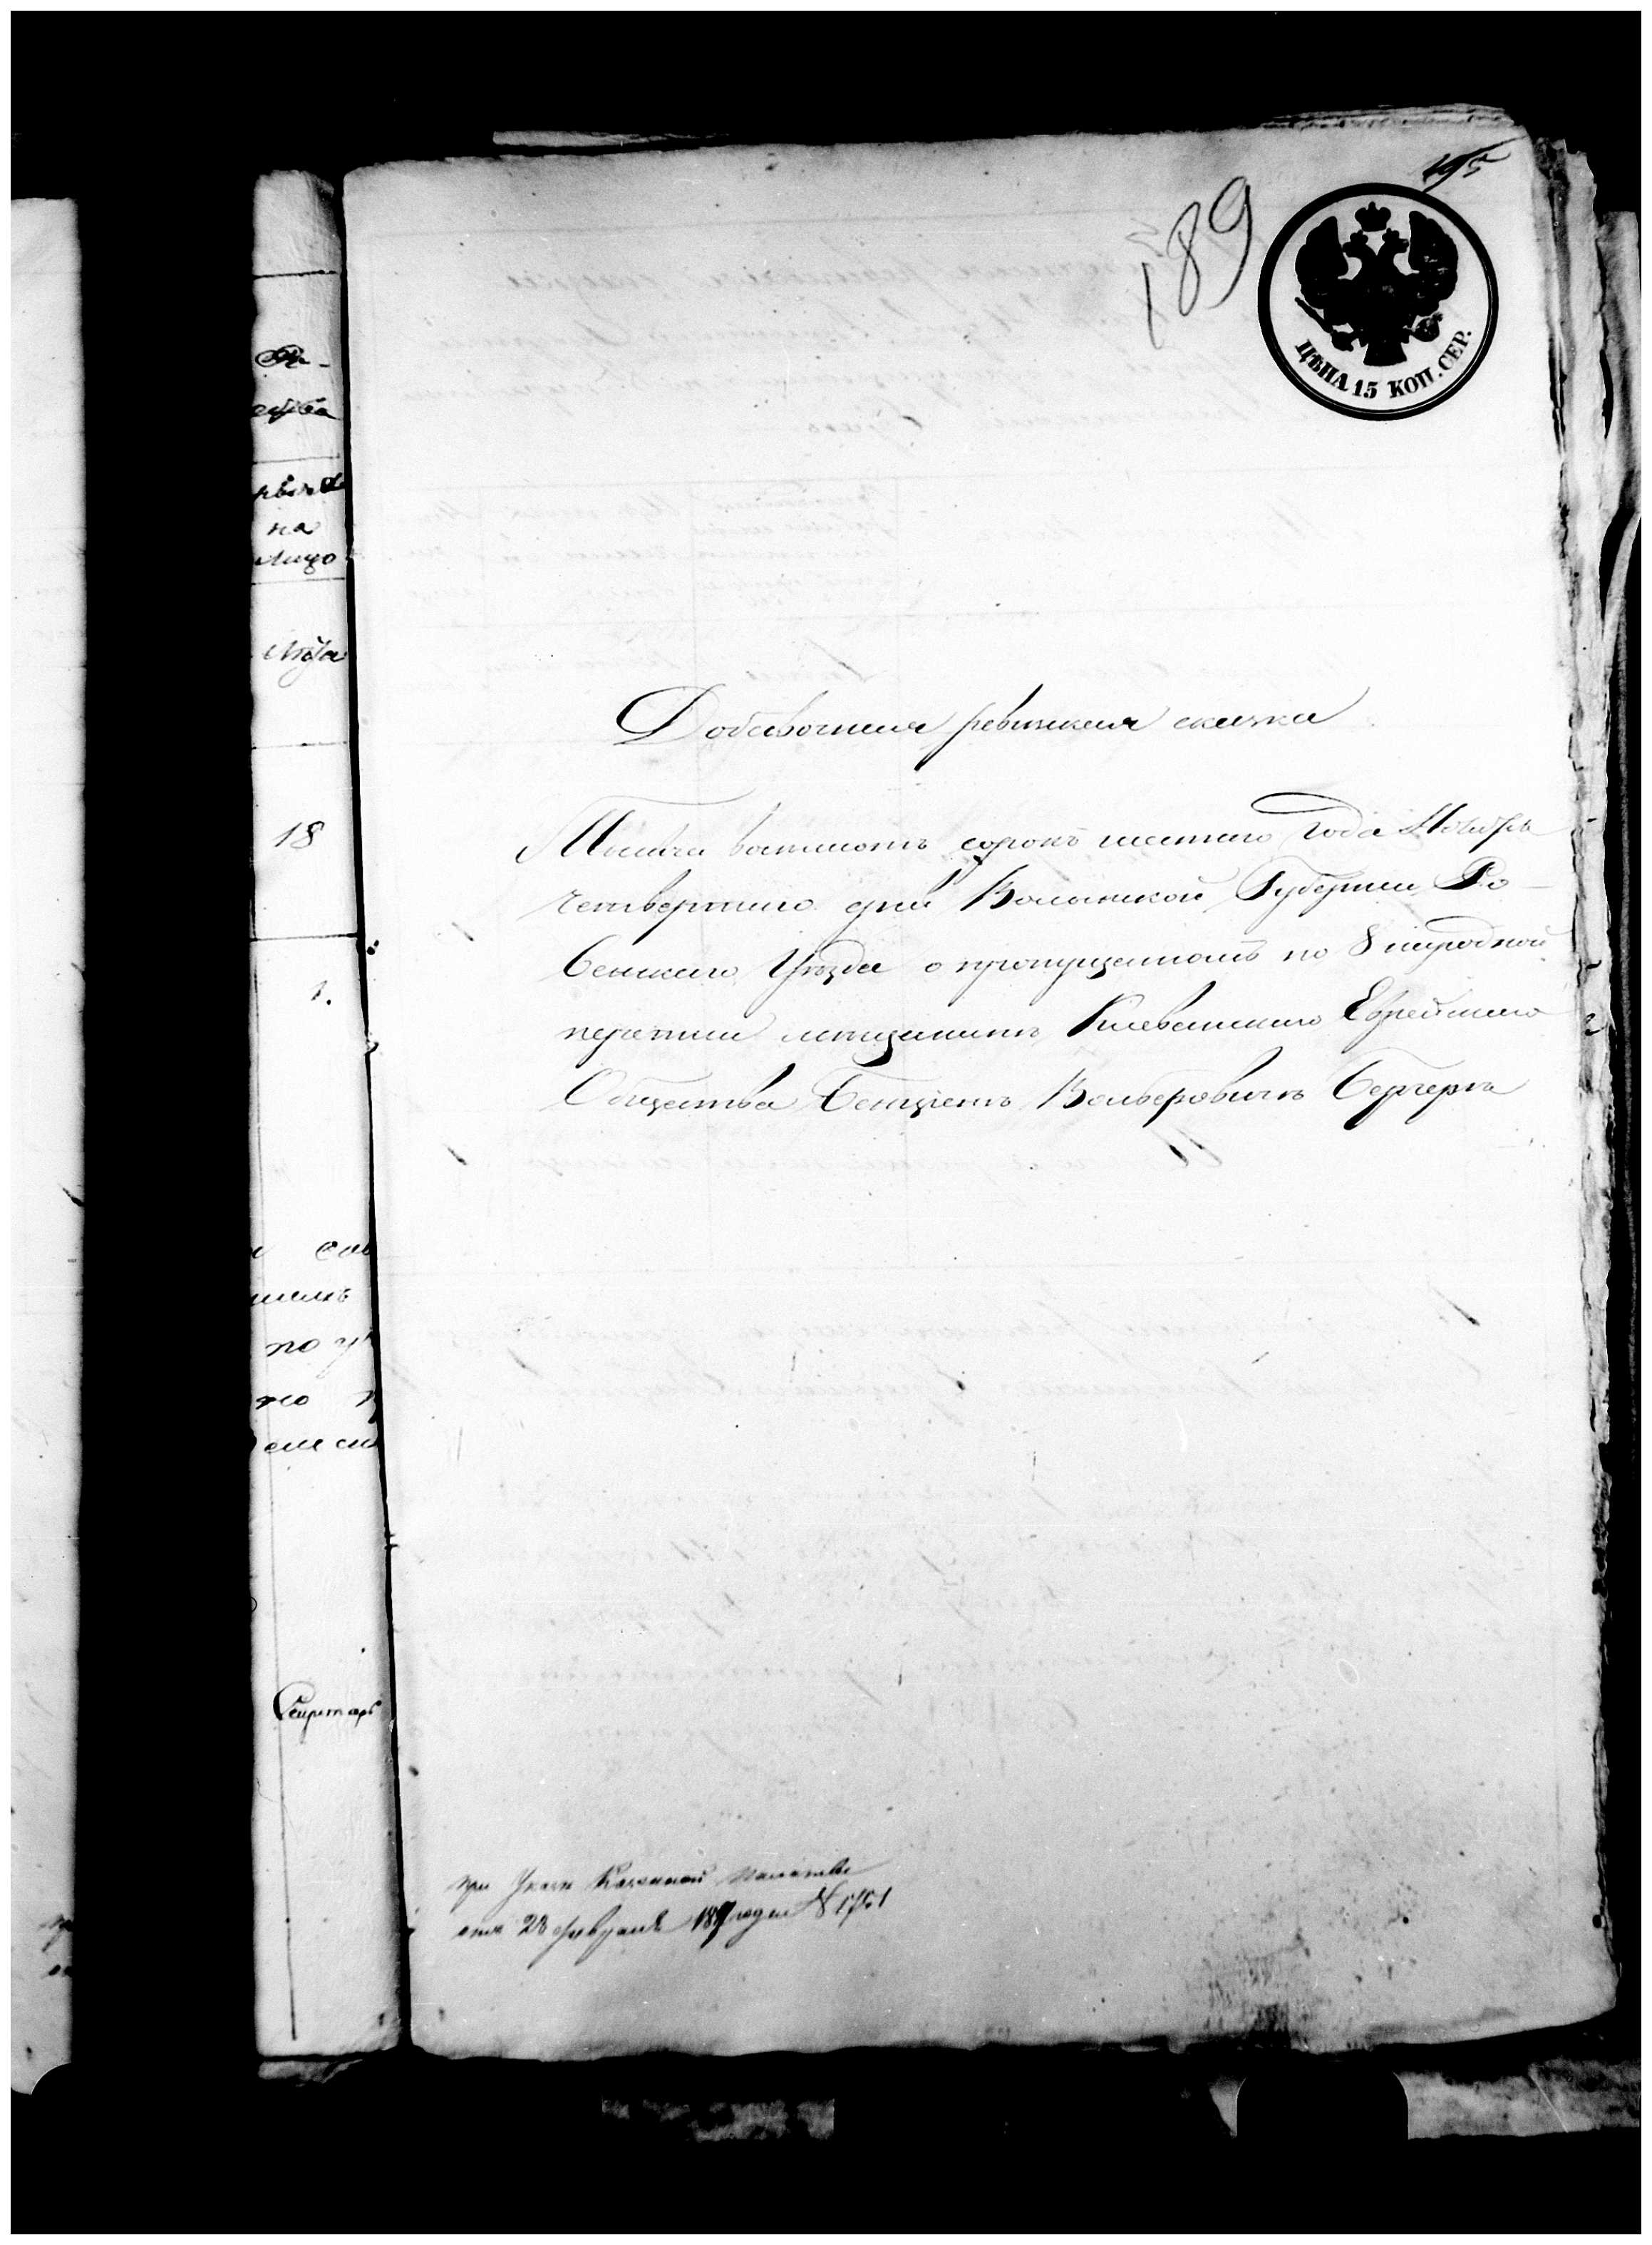 195
189
ЦѢНА 15 КОП. СЕР.
Добавочная ревизская сказка
Тысяча восемьсотъ сорокъ шестаго года Ноября
четвертаго дня Волынской Губерніи Ро-
венскаго Уѣзда о пропущенномъ по 8 народной
переписи мѣщанинѣ Клеванскаго Еврейскаго
Общества Бенціонъ Вольфовичъ Бергеръ
при Указѣ Казенной Палаты
отъ 28 февраля года №
на
лицо
Лѣта
18
1.
по
Секретарь